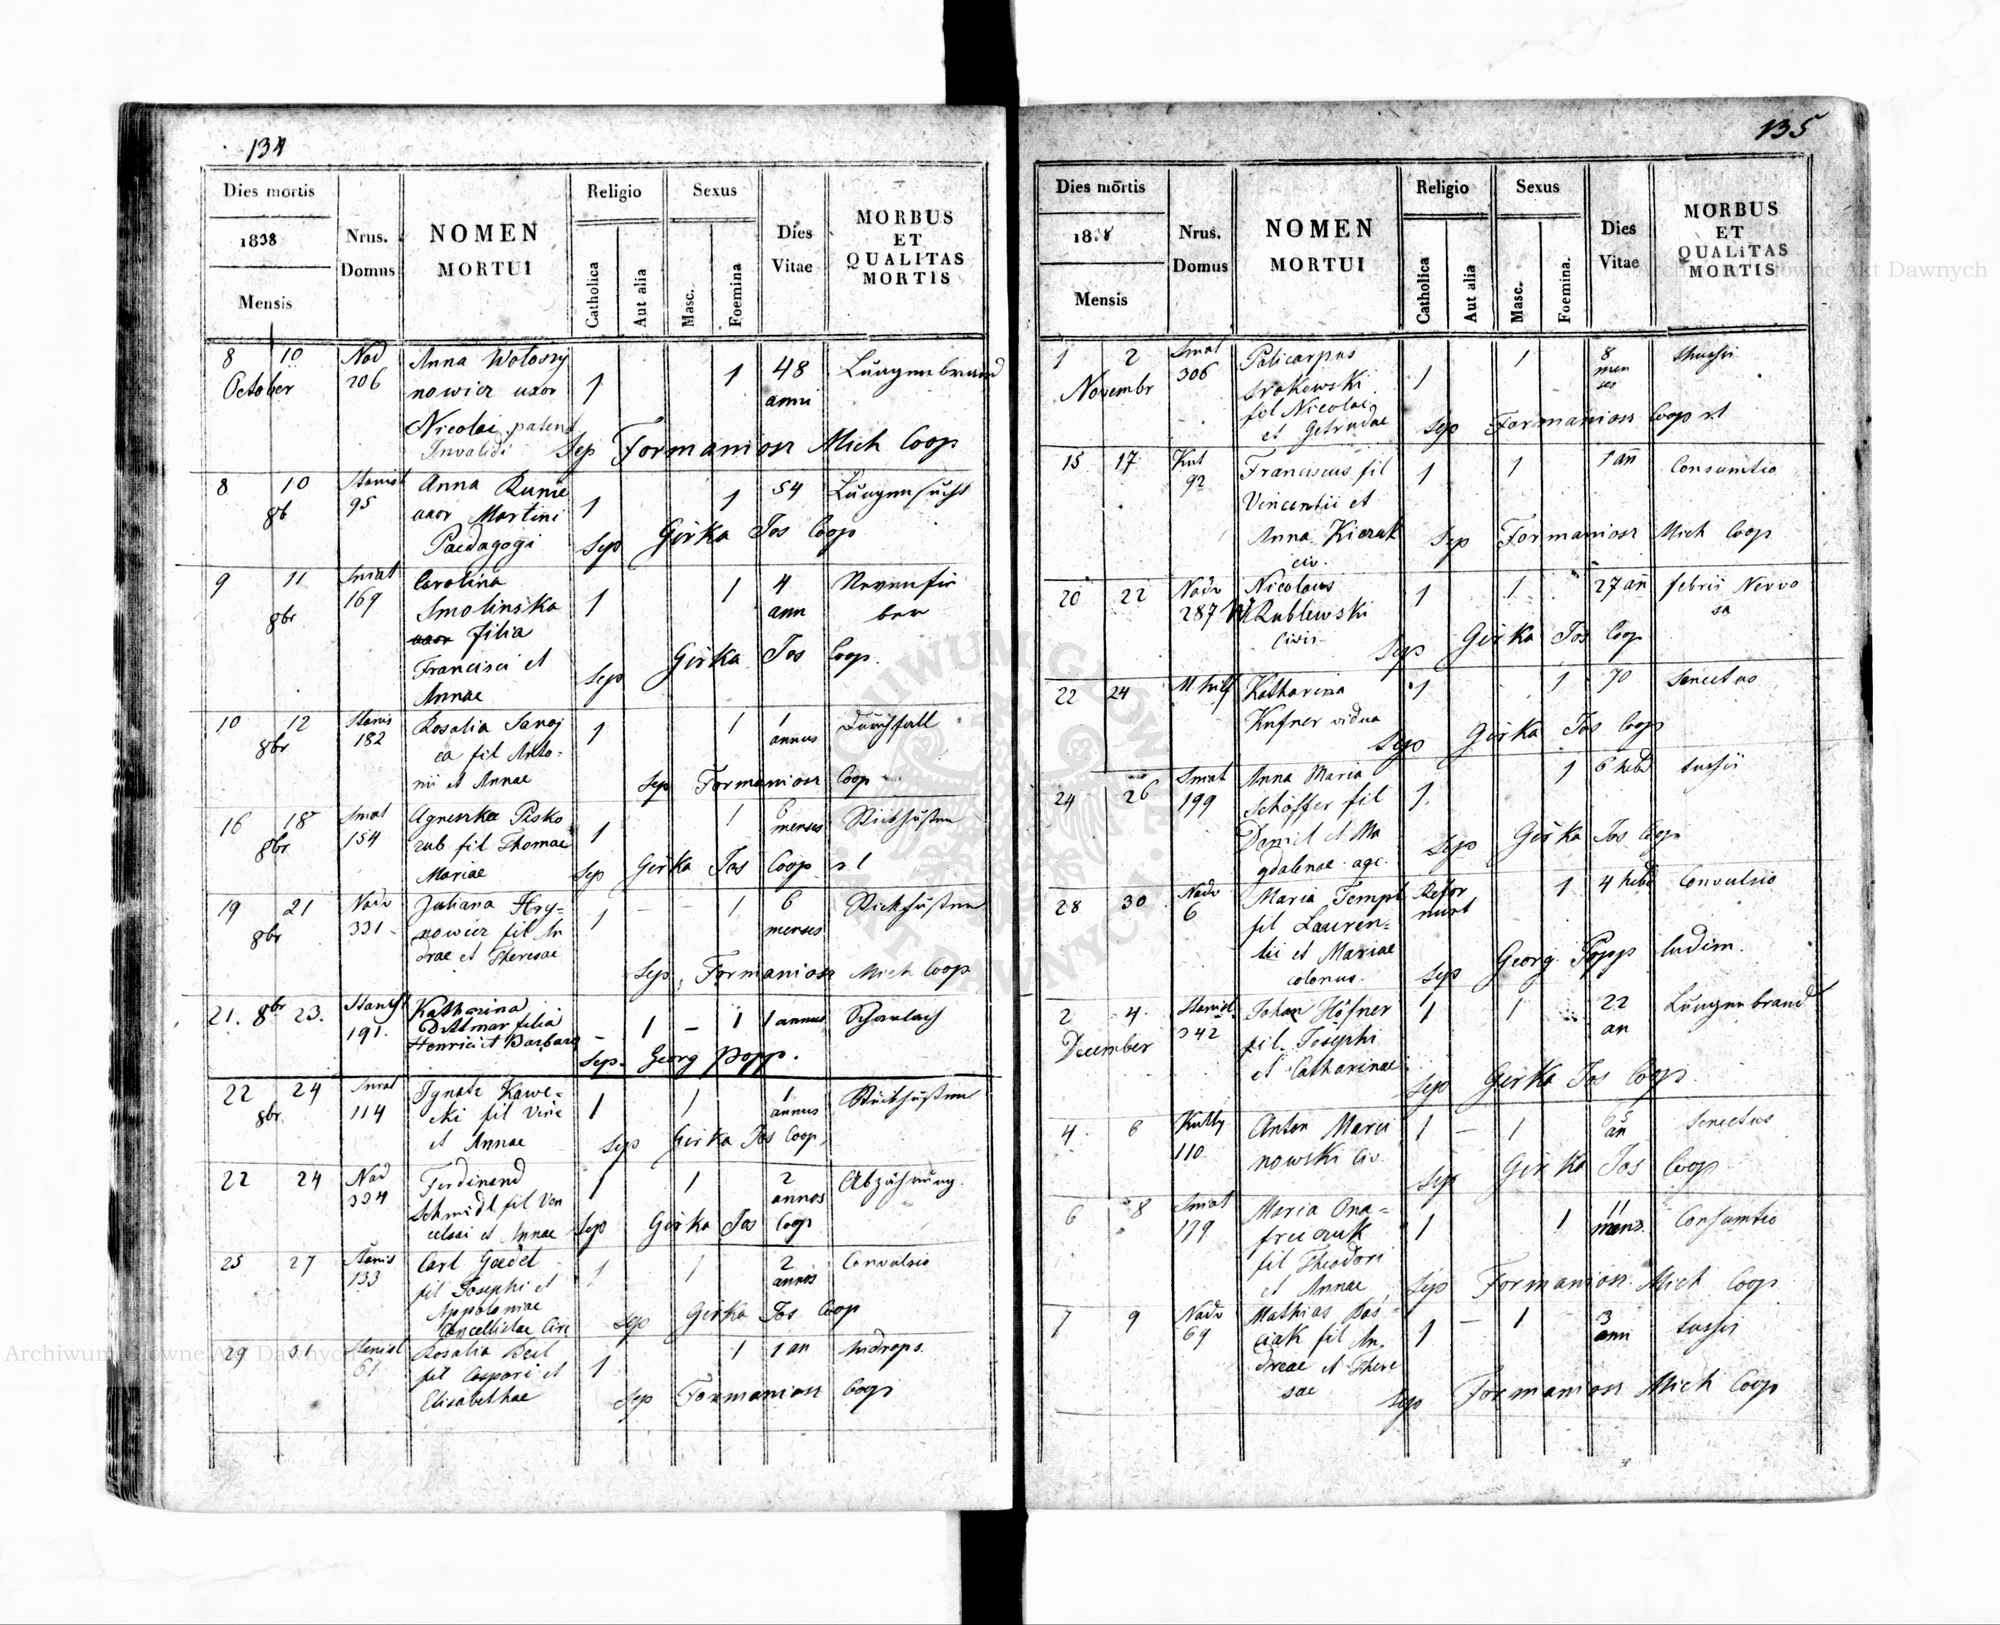 134
Dies mortis
1838
Mensis
Nrus.
Domus
NOMEN
MORTUI
Religio
Catholica
Aut alia
Sexus
Masc.
Foemina
Dies
Vitae
MORBUS
ET
QUALITAS
MORTIS
8 10 Nad Anna Wolossy
October 206 nowicz uxor 1 1 48 Lungenbrand
anni
Nicolai patent
Invalidi Sep Formaniosz Mich Coop
8 10 Stanisl Anna Runie 54 Lungensucht
8b 95 uxor Martini 1 1
Paedagogi Sep Girka Jos Coop
9 11 Smat Carolina 1 4 Nervenfie
8br 169 Smolinska 1 ann ber
uxor filia
Francisci et Sep Girka Jos Coop.
Annae
10 12 Stanis Rosalia Sanoj 1 1 1 Durchfall
8br 182 ca fil Anto- annus
nii et Annae Sep Formaniosz Coop
16 18 Smat Agneska Pisko 1 6 Stickhusten
8br 154 zub fil Thomae 1 menses
Mariae Sep Girka Jos Coop rl
19 21 Nadv Juliana Hry- 1 1 6 Stickhusten
8br 331 nowicz fil An menses
drae et Theresae
Sep Formaniosz Mich Coop
21. 8br 23. Stanisl Katharina
191. Dittmar filia 1 – 1 1 annus Scharlach
Henrici et Barbara
Sep. Georg Popp.
22 24 Smat Ignatz Kawe- 1 1 1 Stickhusten
8br 114 cki fil Vinc annus
et Annae Sep Girka Jos Coop
22 24 Nad Ferdinand 1 1 2 Abzährung.
334 Schmidt fil Ven annos
celsai et Annae Sep Girka Jos Coop
25 27 Stanis Carl Goedel 1 1 2 Convulsio
133 fil Josephi et annos
Appoloniae Sep Girka Jos Coop
Cancellistae Circ
29 31 Stanisl Rosalia Beil 1 1 1 an hidrops.
61 fil Caspari et
Elisabethae Sep Formaniosz Coop
135
Dies mortis
18
Mensis
Nrus.
Domus
NOMEN
MORTUI
Religio
Catholica
Aut alia
Sexus
Masc.
Foemina.
Dies
Vitae
MORBUS
ET
QUALITAS
MORTIS
1 2 Smat Policarpus 1 8
Novembr 306 Srokowski 1 men
ses
fil Nicolai
et Getrudae Sep Formaniosz Coop rl
15 17 Kut Franciscus fil 1 1 1 añ Consumtio
92 Vincentii et
Anna Kierak Sep Formaniosz Mich Coop
civ.
20 22 Nadv Nicolaus 1 1 27 añ febris Nervo
287 Rublewski sa
Civii Sep Girka Jos Coop
22 24 M. hilf Katharina 1 1 70 Senectus
Knfner vidua Sep Girka Jos Coop
24 26 Smat Anna Maria 1 6 hebd tussis
199 Schöffer fil 1
Daniel et Ma
gdalenae agc. Sep Girka Jos Coop
28 30 Nadv Maria Tempt Refor 1 4 hebd Convulsio
6 fil Lauren- mirt
tii et Mariae
colonus. Sep Georg Popp ludim.
2 4 Stanisl. Johan Höfner 1 1 22 Lungenbrand
December 342 fil Josephi an
et Catharinae Sep Girka Jos Coop.
4 6 Knihy Anton Marci 1 – 1 65 Senectus
110 nowski Civ. an
Sep Girka Jos Coop
6 8 Smat Maria Ona- 1 1 11 Consumtio
179 freiczuk mens.
fil Theodori
et Annae Sep Formaniosz Mich Coop
7 9 Nadv Mathias Kos 1 – 1 3 tussis
69 ciak fil An, ann
dreae et There
sae Sep Formaniosz Mich Coop
Archiwum Główne Akt Dawnych
Archiwum Główne Akt Dawnych